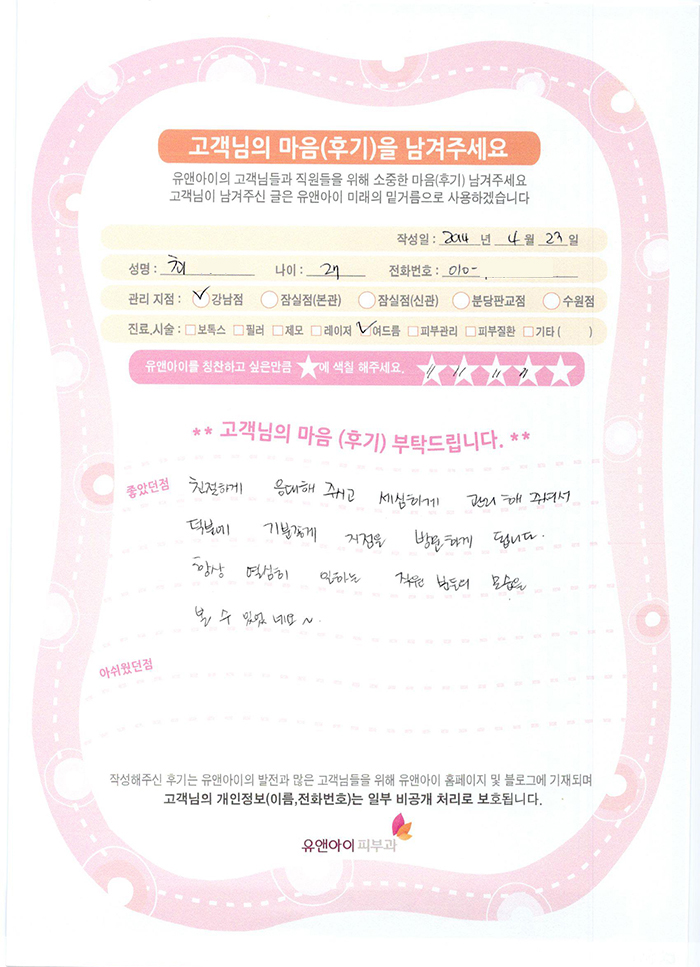 고객님의 마음(후기)을 남겨주세요
유앤아이의 고객님들과 직원들을 위해 소중한 마음(후기) 남겨주세요
고객님이 남겨주신 글은 유앤아이 미래의 밑거름으로 사용하겠습니다
작성일 : 2014 년 4 월 23 일
성명 : 최 나이 : 전화번호 : 010-
관리 지점 : ✓강남점 ○잠실점(본관) ○잠실점(신관) ○분당판교점 ○수원점
진료.시술 : □보톡스 □필러 □제모 □레이저 ✓여드름 □피부관리 □피부질환 □기타 ( )
유앤아이를 칭찬하고 싶은만큼 ★에 색칠 해주세요. ★★★★★
** 고객님의 마음 (후기) 부탁드립니다. **
좋았던점 친절하게 응대해 주시고 세심하게 관리 해 주셔서
덕분에 기분좋게 지점을 방문하게 됩니다.
항상 열심히 일하는 직원 분들의 모습을
볼 수 있었네요~
아쉬웠던점
작성해주신 후기는 유앤아이의 발전과 많은 고객님들을 위해 유앤아이 홈페이지 및 블로그에 기재되며
고객님의 개인정보(이름,전화번호)는 일부 비공개 처리로 보호됩니다.
유앤아이 피부과